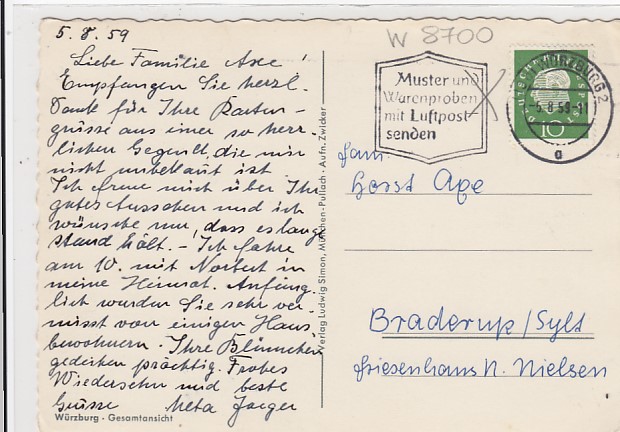 5. 8. 59
Liebe Familie Axe!
Empfangen Sie herzl.
Dank für Ihre Karten-
grüsse aus einer so herr-
lichen Gegend, die mir
nicht unbekannt ist.
Ich freue mich über Ihr
gutes Aussehen und ich
wünsche nur, dass es lange
stand hält. – Ich fahre
am 10. mit Norbert in
meine Heimat. Anfäng-
lich wurden Sie sehr ver-
misst von einigen Haus-
bewohnern. Ihre Blümchen
gedeihen prächtig. Frohes
Wiedersehn und beste
Grüsse Meta Jaeger
Würzburg - Gesamtansicht
Verlag Ludwig Simon, München-Pullach - Aufn. Zwicker
W 8700
Muster und
Warenproben
mit Luftpost
senden
WÜRZBURG 2
-5.8.59-11
a
DEUTSCHE BUNDESPOST
10
Fam.
Horst Axe
Braderup/Sylt
Friesenhaus N. Nielsen